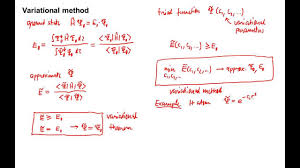 Variational method
ground state Ĥ Ψ₀ = E₀ Ψ₀
E₀ = ∫Ψ₀* Ĥ Ψ₀ dτ / ∫Ψ₀* Ψ₀ dτ = <Ψ₀|Ĥ|Ψ₀> / <Ψ₀|Ψ₀>
approximate Ψ̃
Ẽ = <Ψ̃|Ĥ|Ψ̃> / <Ψ̃|Ψ̃>
Ẽ ≥ E₀ variational
Ẽ = E₀ → Ψ̃ = Ψ₀ theorem
trial function Ψ̃ (c₁, c₂, ...)
variational
parameters
Ẽ(c₁, c₂, ...) ≥ E₀
min Ẽ(c₁, c₂, ...) → approx. Ψ₀, E₀
c₁, c₂, ...
variational method
Example H atom Ψ̃ = e